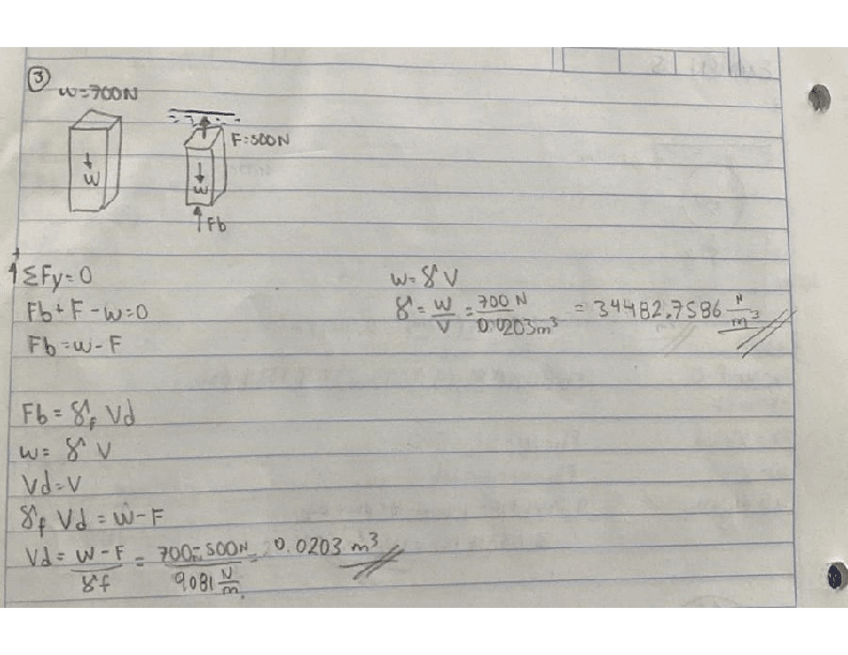 3
w=700N
F=500N
W
w
Fb
+
ΣFy=0
Fb+F-w=0
Fb=w-F
w=γV
γ=W/V=700 N/0.0203m³ = 34482.7586 N/m³
Fb=γf Vd
w=γ V
Vd=V
γf Vd=w-F
Vd=W-F/γf=700-500N/9081 = 0.0203 m³